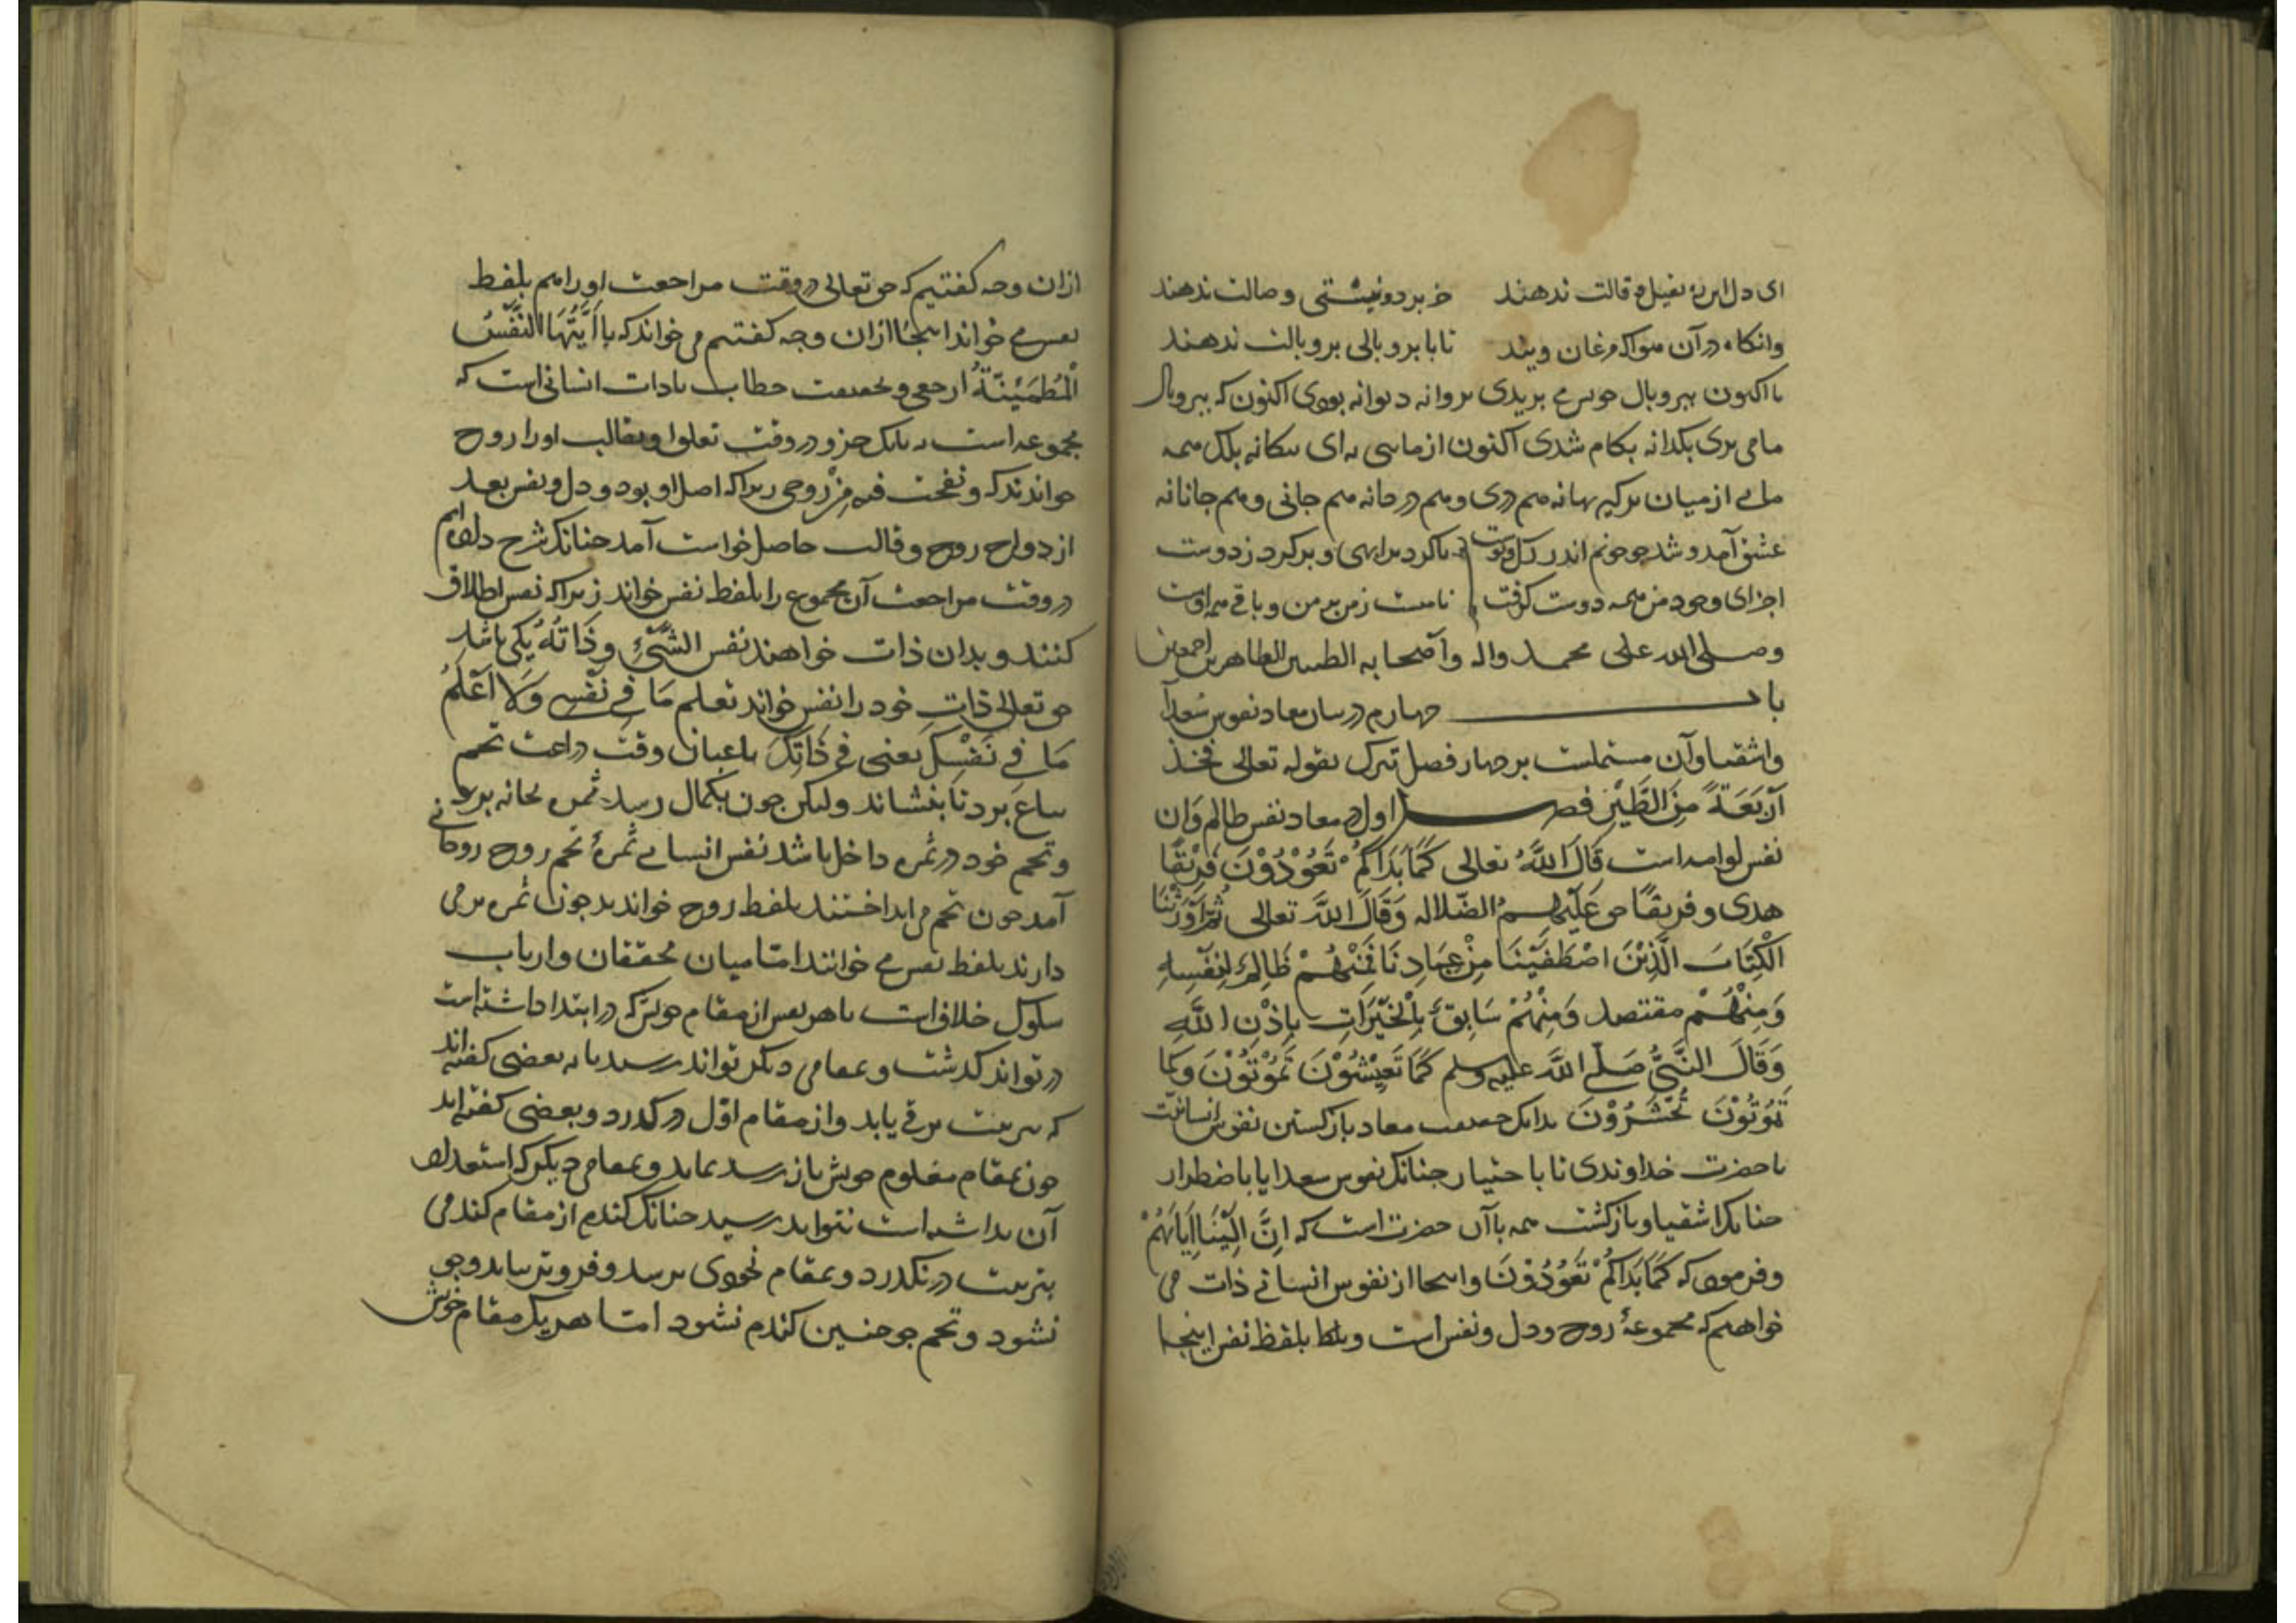 ای دل این ره بقیل و قالت ندهند جز بر در نیستی وصالت ندهند
وانکاه در آن هوا که مرغان ویند تا با پر و بالی پر و بالت ندهند
تا اکنون بپر و بال خویش می پریدی پروانه دیوانه بودی اکنون که بپر و بال
ما می پری یکدانه بکام شدی اکنون از مایی نه ای بیکانه بلک همه
مایی از میان برکیر بهانه هم دری و هم در خانه هم جانی و هم جانانه
عشق آمد و شد چو خونم اندر رک و پوست تا کرد مرا تهی و پر کرد ز دوست
اجزای وجود من همه دوست کرفت نامیست ز من بر من و باقی همه اوست
وصلی الله علی محمد واله وآصحابه الطیبین الطاهرین اجمعین
باب چهارم در بیان معاد نفوس سُعدآ
واشقیا وآن مشتملست بر چهار فصل تبرک بقوله تعالی فخذ
آرْبَعَةً مِنَ الطَّيْرِ فصل اول در معاد نفس ظالم وَان
نفس لوامه است قَالَ اللَّهُ تعالی كَمَا بَدَاكُمْ تَعُوْدُوْنَ فَرِيْقًا
هدی و فریقًا حق عَلَيْهِمُ الضّلاله وَقَالَ اللَّهَ تعالی ثُمَّ اَوْرَثْنَا
الْكِتَابَ الَّذِيْنَ اصْطَفَيْنَا مِنْ عِبَادِنَا فَمِنْهُمْ ظَالِمٌ لِنَفْسِهِ
وَمِنْهُمْ مقتصد وَمِنْهُمْ سَابِقٌ بِالْخَيْرَاتِ بِاِذْنِ اللَّهِ
وَقَالَ النَّبِيُّ صَلَّى اللَّهَ علیه وسلم كَمَا تَعِيْشُوْنَ تَمُوْتُوْنَ وَكَمَا
تَمُوْتُوْنَ تُحْشَرُوْنَ بدانک حقیقت معاد باز کشتن نفوس انسانیت
با حضرت خداوندی تا با ختیار چنانک نفوس سعدا یا باضطرار
چنانک اشقیا و بازکشت همه باآن حضرت است که اِنَّ اِلَيْنَا اِيَابَهُمْ
و فرموده که كَمَا بَدَاكُمْ تَعُوْدُوْنَ واینجا از نفوس انسانی ذات می
خواهیم که مجموعهٔ روح و دل و نفس است و بلفظ نفس اینجا
ازان وجه کفتیم که حق تعالی در وقت مراجعت اورا هم بلفظ
نفس می خواند اینجا ازان وجه کفتیم می خواند که یا اَيَّتُهَا النَّفْسُ
الْمُطْمَئِنَّةُ ارجعی و بحقیقت خطاب بادات انسانی است که
مجموعه است نه بایک جزو در وقت تعلق او بقالب اورا روح
خواندند که و نفخت فیه مِنْ روحی زیراکه اصل او بود و دل و نفس بعد
از دواج روح و قالب حاصل خواست آمد چنانک شرح داده ایم
در وقت مراجعت آن مجموع را بلفظ نفس خواند زیراکه نفس اطلاق
کنند و بدان ذات خواهند نفس الشَّيْءِ وذَاتُهُ یکی باشد
حق تعالی ذاتِ خود را نفس خواند تعلم مَا فِي نَفْسِي وَلَا اَعْلَمُ
مَا فِي نَفْسِكَ یعنی فِي ذَاتِكَ باغبان وقت زراعت تخم
بباغ برد تا بنشاند ولیکن چون بکمال رسد ثمره بخانه برد
و تخم خود در ثمره داخل باشد نفس انسانی ثمرهٔ تخم روح روحانی
آمد چون تخم می انداختند بلفط روح خواندند چون ثمره بر می
دارند بلفط نفس می خوانند امّا میان محققان و ارباب
سلوک خلاف است تا هر نفس از مقام خویش که در ابتدا داشته است
در تواند کدشت و بمقامی دیکر تواند رسید یا نه بعضی کفته اند
که بتربیت ترقی یابد و از مقام اوّل در کدرد و بعضی کفته اند
چون بمقام معلوم خویش باز رسد بماند و بمقامی دیکر که استعداد
آن نداشته است نتواند رسید چنانک کندم از مقام کندمی
بتربیت در نکدرد و بمقام نخودی نرسد و فروتر نیاید و جو
نشود و تخم جو حنین کندم نشود امّا هر یک مقام خویش